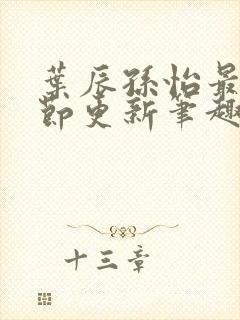 葉辰孫怡最
節更新筆趣
十三章